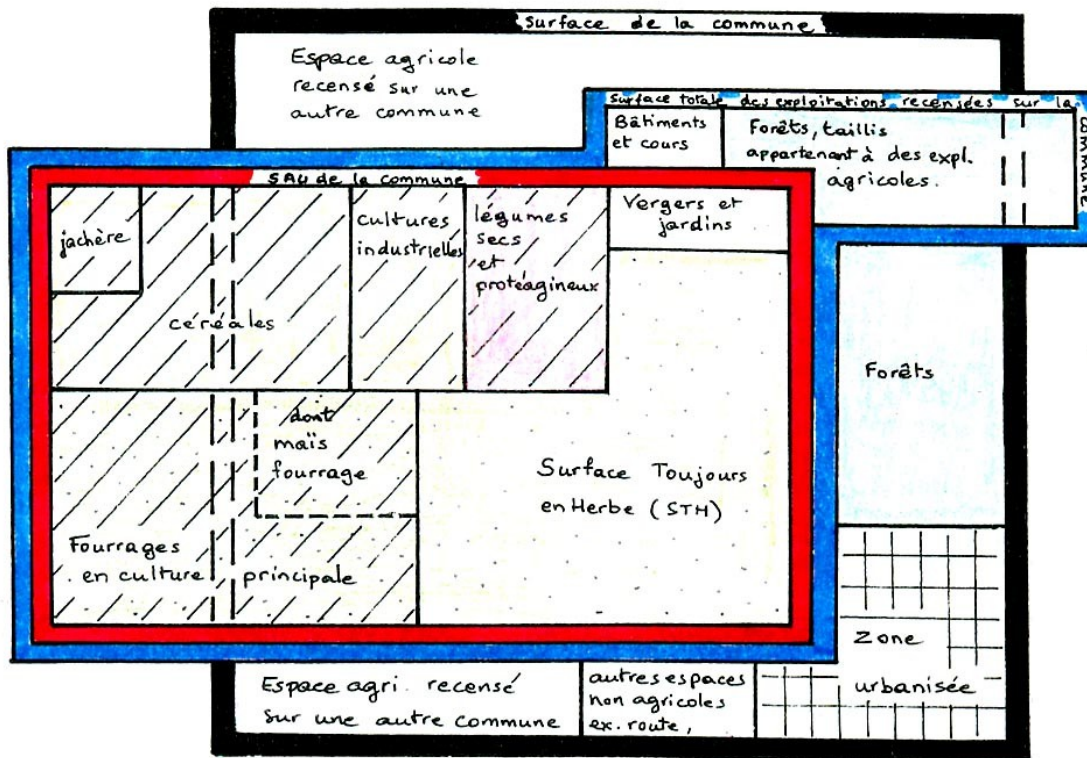 Surface de la commune
Espace agricole
recensé sur une
autre commune
Surface totale des exploitations recensées sur la
COMMUNE
Bâtiments
et cours
Forêts, taillis
appartenant à des expl.
agricoles.
SAU de la commune
jachère
céréales
cultures
industrielles
légumes
secs
et
protéagineux
Vergers et
jardins
dont
maïs
fourrage
Surface Toujours
en Herbe (STH)
Fourrages
en culture principale
Forêts
Zone
urbanisée
Espace agri. recensé
sur une autre commune
autres espaces
non agricoles
ex. route,